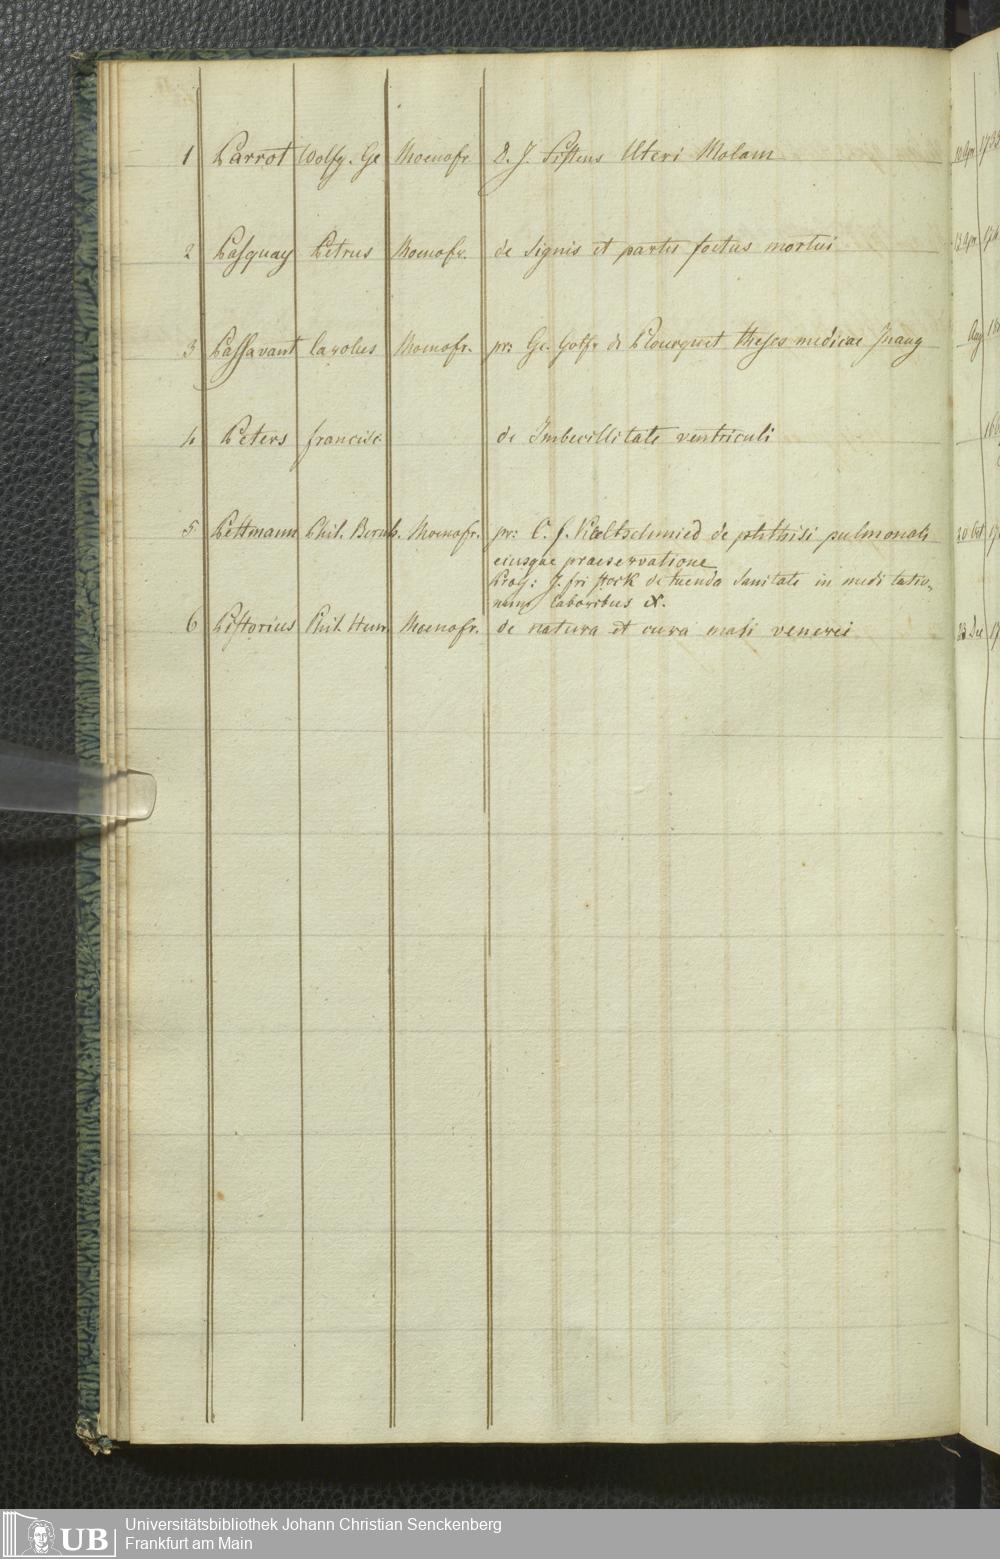 1 Parrot Wolfg. Ge Moenofr. D. J. sistens Uteri Molam 10 Apr.
2 Pasquay Petrus Moenofr. de signis et partu foetus mortui 13 Apr.
3 Passavant Carolus Moenofr. pr: Ge. Gotfr. de Ploucquet theses medicae Inaug Aug
4 Peters francisc. de Imbecillitate ventriculi
5 Pettmann Phil. Bernh. Moenofr. pr: C. f. Kaltschmied de phthisi pulmonali 20 Oct
eiusque praeservatione
Prog: J. fri stock de tuenda Sanitate in meditatio„
num laboribus X.
6 Pistorius Phil. Henr. Moenofr. de natura et cura mali venerei 23 Dec
UB Universitätsbibliothek Johann Christian Senckenberg
Frankfurt am Main